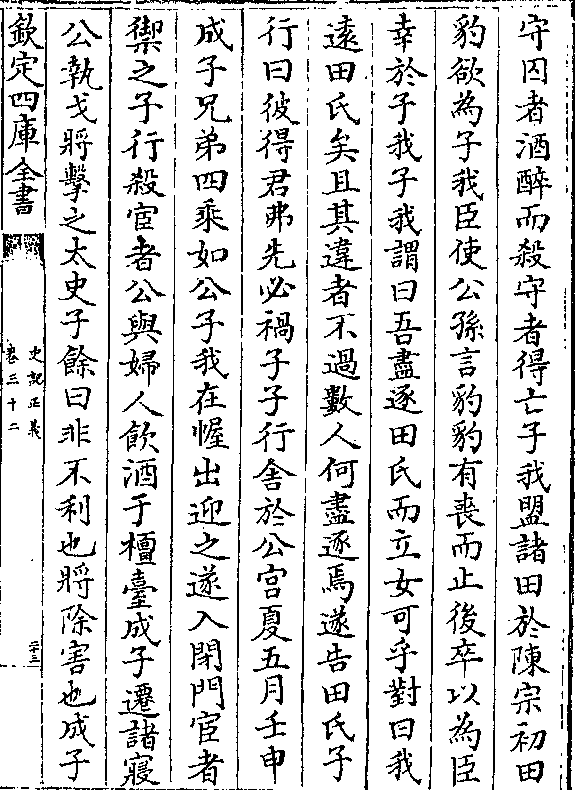 守囚者酒醉而殺守者得亡子我盟諸田於陳宗初田
豹欲為子我臣使公孫言豹豹有喪而止後卒以為臣
幸於子我子我謂曰吾盡逐田氏而立女可乎對曰我
遠田氏矣且其違者不過數人何盡逐焉遂告田氏子
行曰彼得君弗先必禍子子行舍於公宮夏五月壬申
成子兄弟四乘如公子我在幄出迎之遂入閉門宦者
禦之子行殺宦者公與婦人飲酒于檀臺成子遷諸寢
公執戈將擊之太史子餘曰非不利也將除害也成子
欽定四庫全書
史記正義
卷三十二
二十三